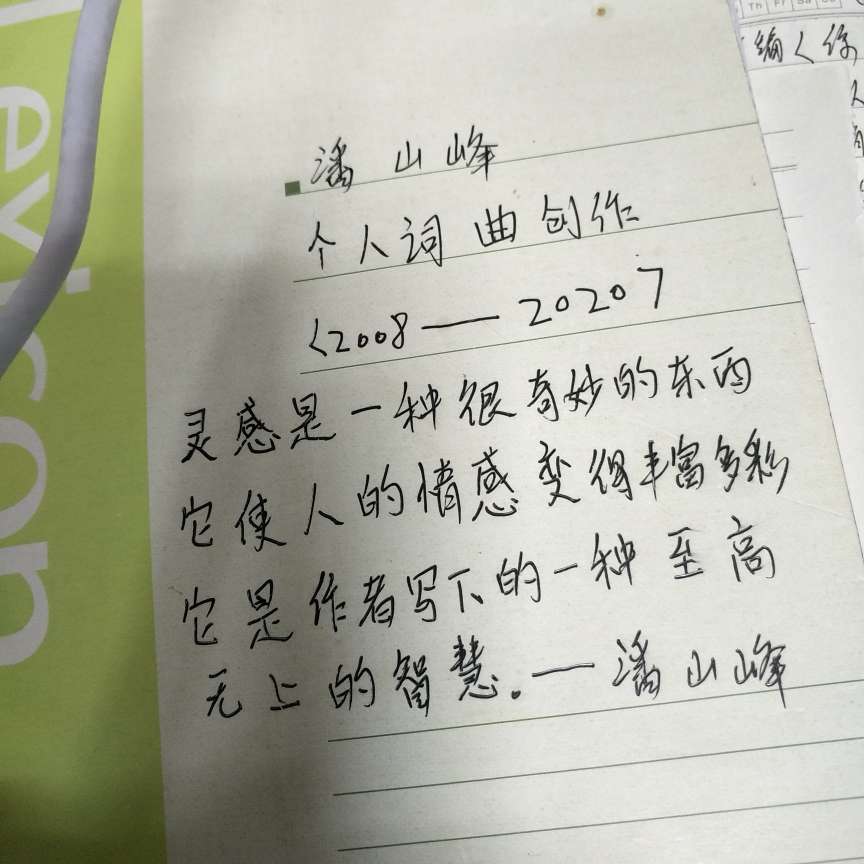 潘山峰
个人词曲创作
<2008——2020>
灵感是一种很奇妙的东西
它使人的情感变得丰富多彩
它是作者写下的一种至高
无上的智慧。—潘山峰
evison
Th Fr Sa Su